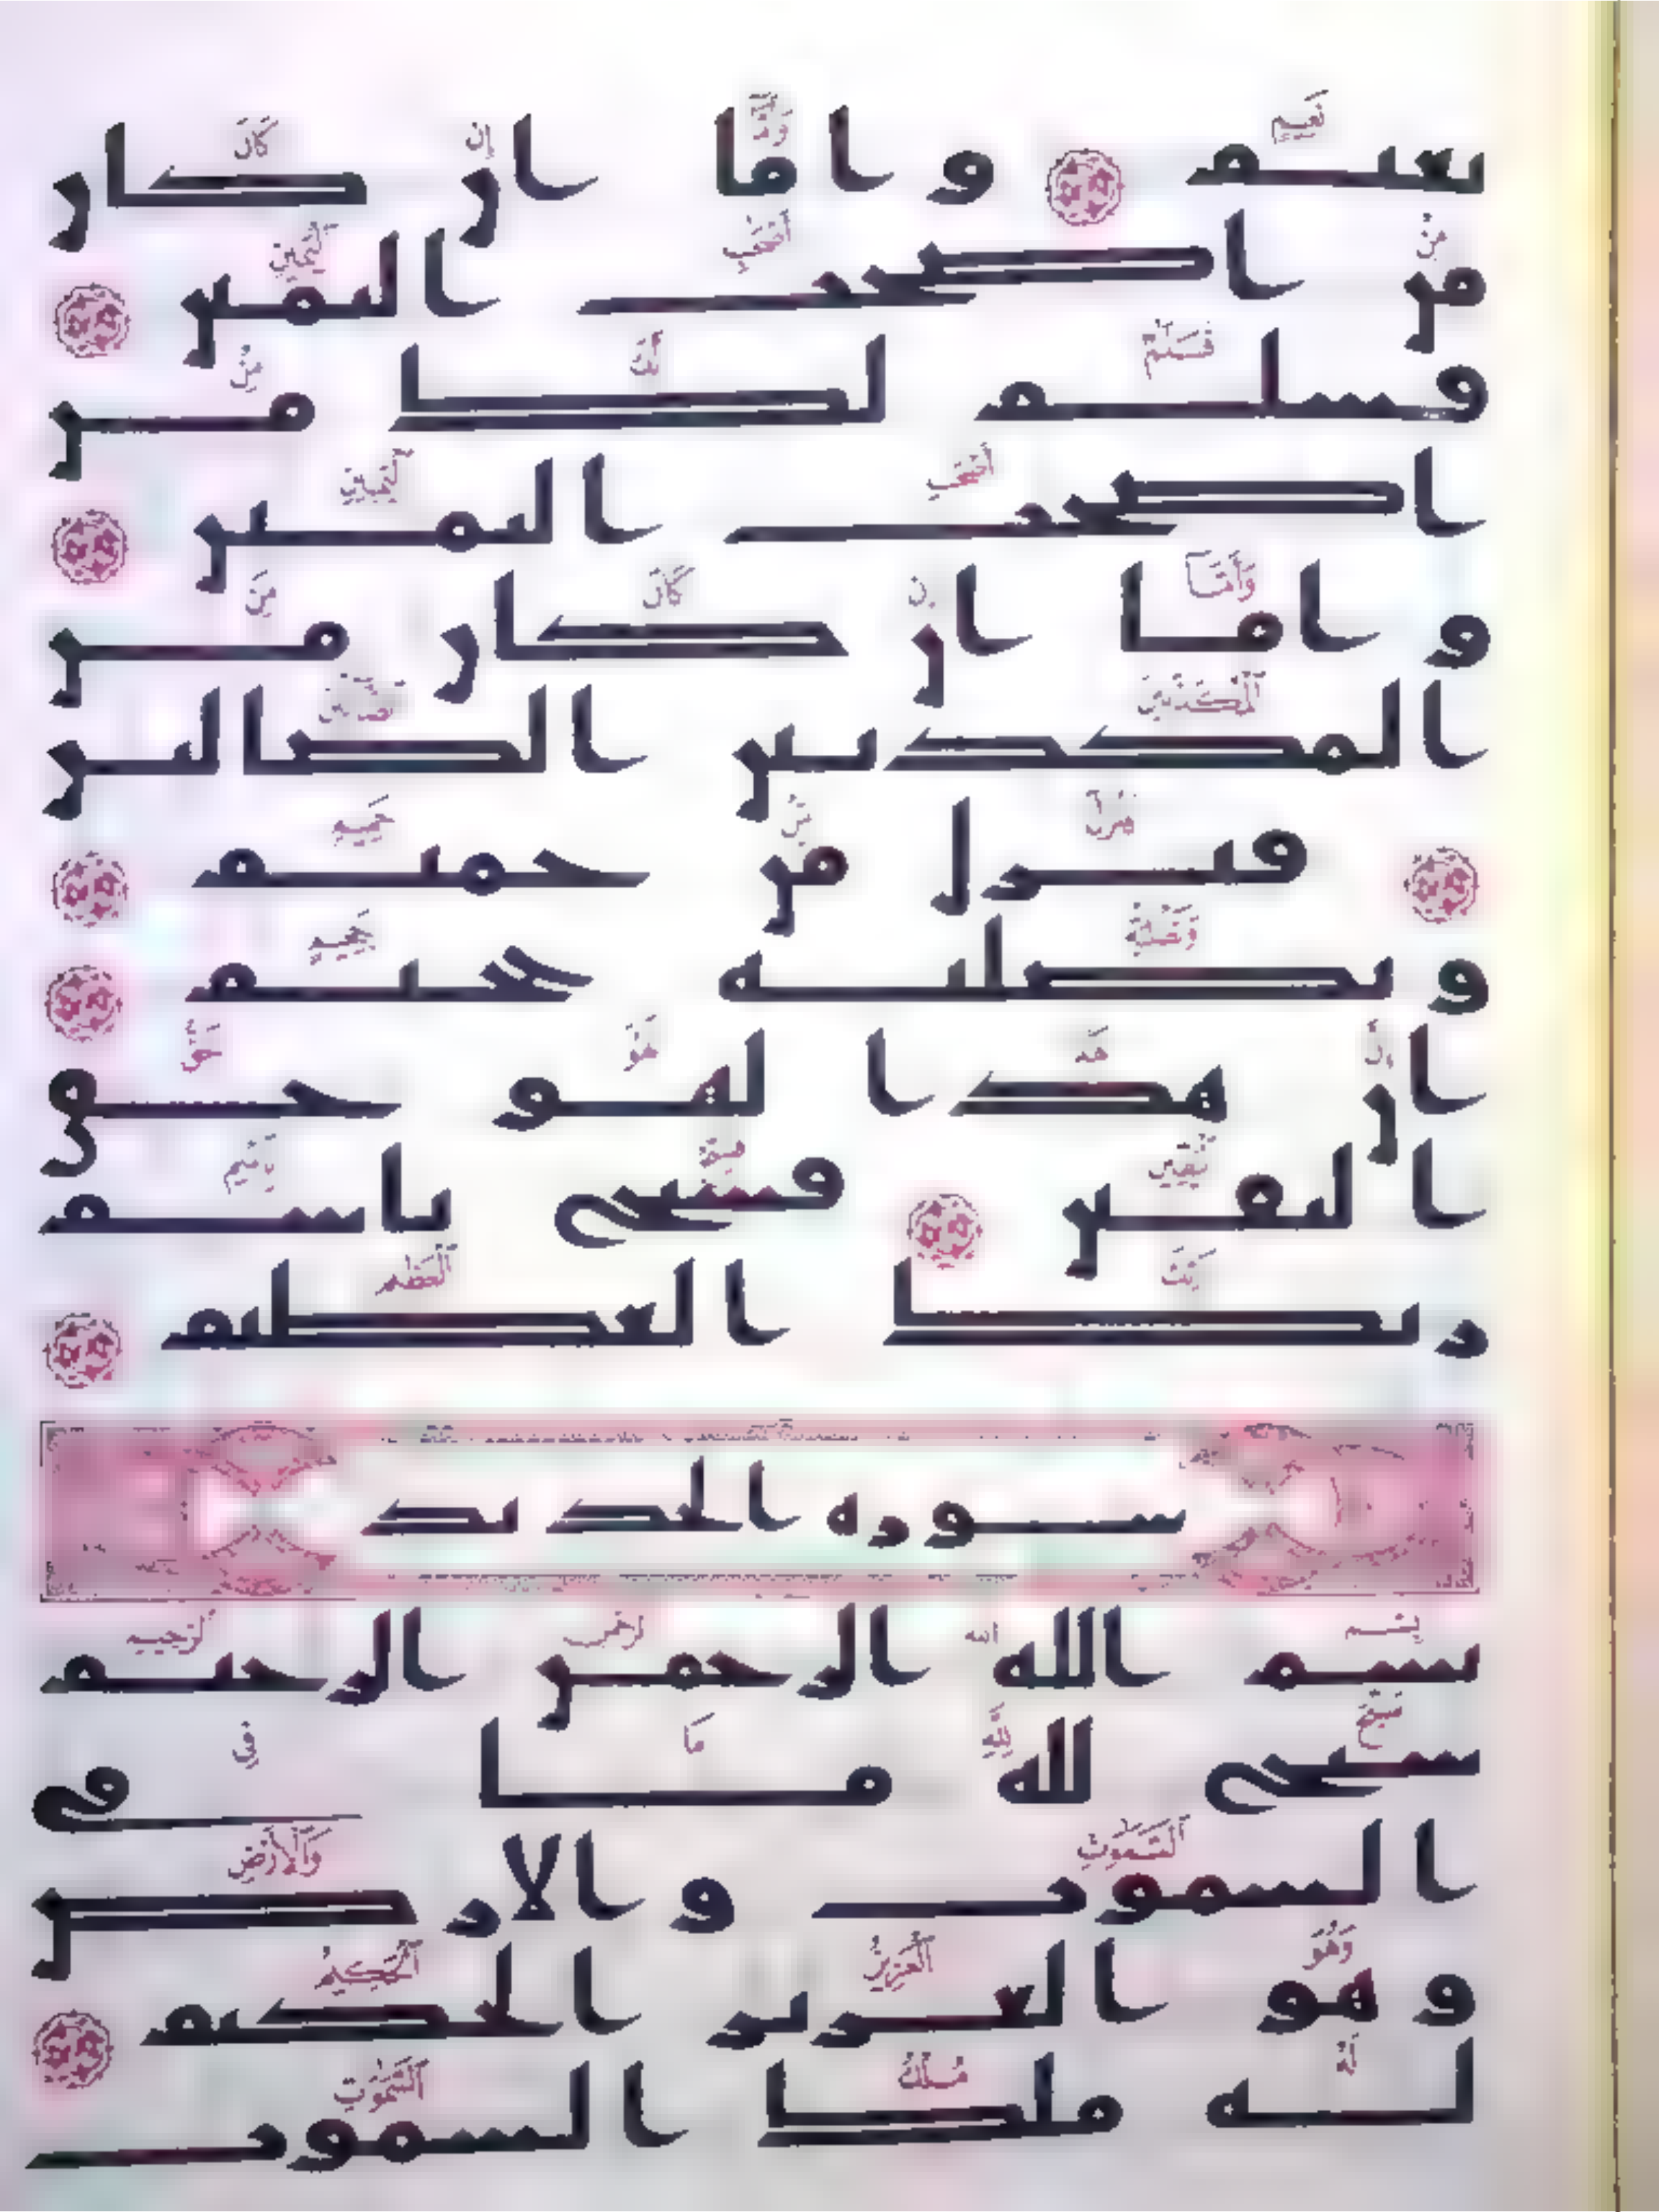 نعيم وأما إن كان
من أصحب اليمين
فسلم لك من
أصحب اليمين
وأما إن كان من
المكذبين الضالين
فنزل من حميم
وتصلية جحيم
إن هذا لهو حق
اليقين فسبح باسم
ربك العظيم
سورة الحديد
بسم الله الرحمن الرحيم
سبح لله ما في
السموت والأرض
وهو العزيز الحكيم
له ملك السموت